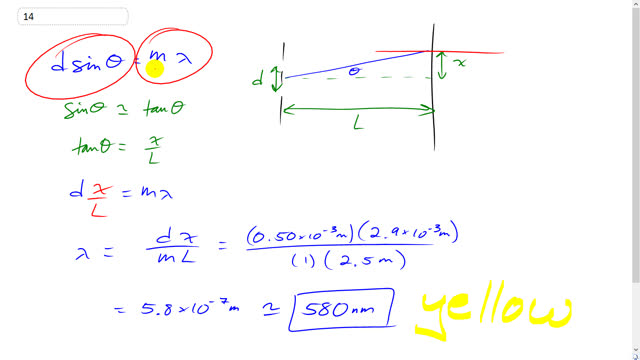 14
d sinθ = mλ
sinθ ≃ tanθ
tanθ = x/L
d x/L = mλ
λ = dx/mL = (0.50×10⁻³m)(2.9×10⁻³m)/(1)(2.5m)
= 5.8×10⁻⁷m ≃ 580nm
yellow
d
θ
x
L